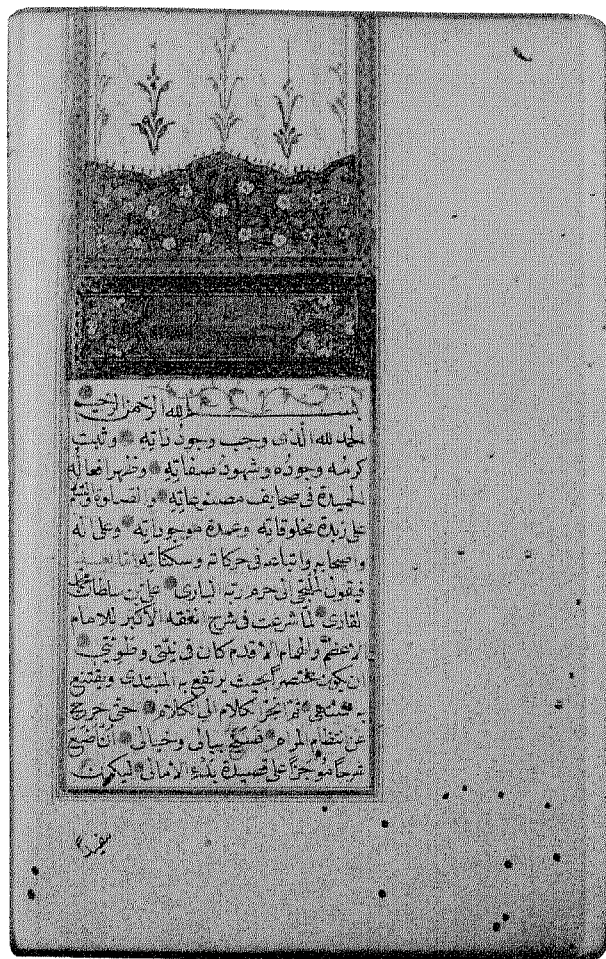 بسم الله الرحمن الرحيم
الحمد لله الذى وجب وجود ذاته وثبت
كرمه وجوده وشهود صفاته وظهر افعاله
الحميدة فى صحايف مصنوعاته والصلوة والسلام
على زبدة مخلوقاته وعمدة موجوداته وعلى اله
واصحابه واتباعه فى حركاته وسكناته اما بعد
فيقول الملتجئ الى حرم ربه البارى على بن سلطان محمد
القارى لما شرعت فى شرح الفقه الاكبر للامام
الاعظم والهمام الاقدم كان فى نيتى وطويتى
ان يكون مختصرا بحيث يرتفع به المبتدى ويقتنع
به المنتهى ثم انجر كلام الى كلام حتى خرج
عن نظام المرام فسنح ببالى وخيالى ان اضع
شرحا موجزا على قصيدة بدء الامالى ليكون